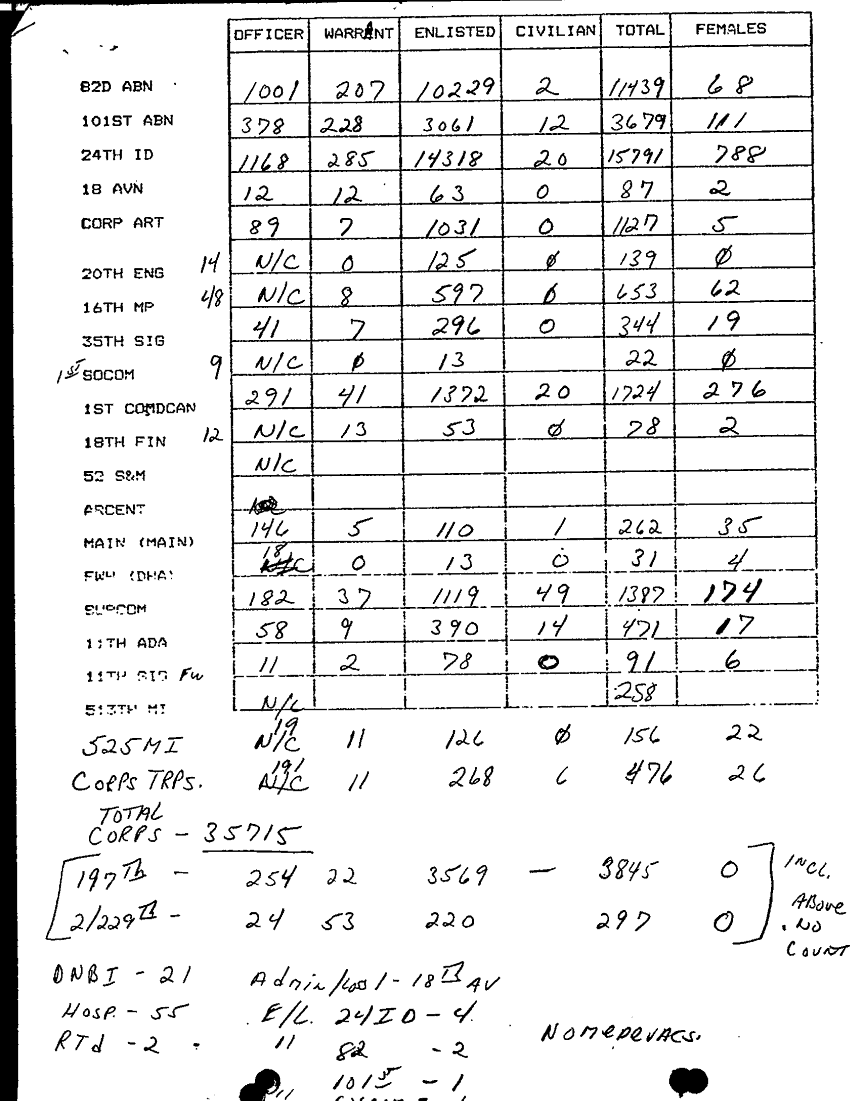 OFFICER WARRANT ENLISTED CIVILIAN TOTAL FEMALES
82D ABN 1001 207 10229 2 11439 68
101ST ABN 378 228 3061 12 3679 111
24TH ID 1168 285 14318 20 15791 788
18 AVN 12 12 63 0 87 2
CORP ART 89 7 1031 0 1127 5
20TH ENG 14 N/C 0 125 ∅ 139 ∅
16TH MP 48 N/C 8 597 ∅ 653 62
35TH SIG 41 7 296 0 344 19
1ST SOCOM 9 N/C ∅ 13 22 ∅
1ST COMDCAN 291 41 1372 20 1724 276
18TH FIN 12 N/C 13 53 ∅ 78 2
52 S&M N/C
ARCENT
MAIN (MAIN) 146 5 110 1 262 35
FWD (DHA) 18 N/C 0 13 0 31 4
SUPCOM 182 37 1119 49 1387 174
11TH ADA 58 9 390 14 471 17
11TH SIG Fw 11 2 78 0 91 6
513TH MI N/C 258
19
525 MI N/C 11 126 ∅ 156 22
191
CORPS TRPS. N/C 11 268 6 476 26
TOTAL
CORPS - 35715
197Th - 254 22 3569 — 3845 0 INCL.
ABove
2/229Th - 24 53 220 297 0 . NO
COUNT
DNBI - 21 Admin/Loss 1 - 18Th AV
HOSP. - 55 E/L. 24ID - 4.
RTd - 2 . 11 82 - 2 NO MEDEVACS.
11 101ST - 1